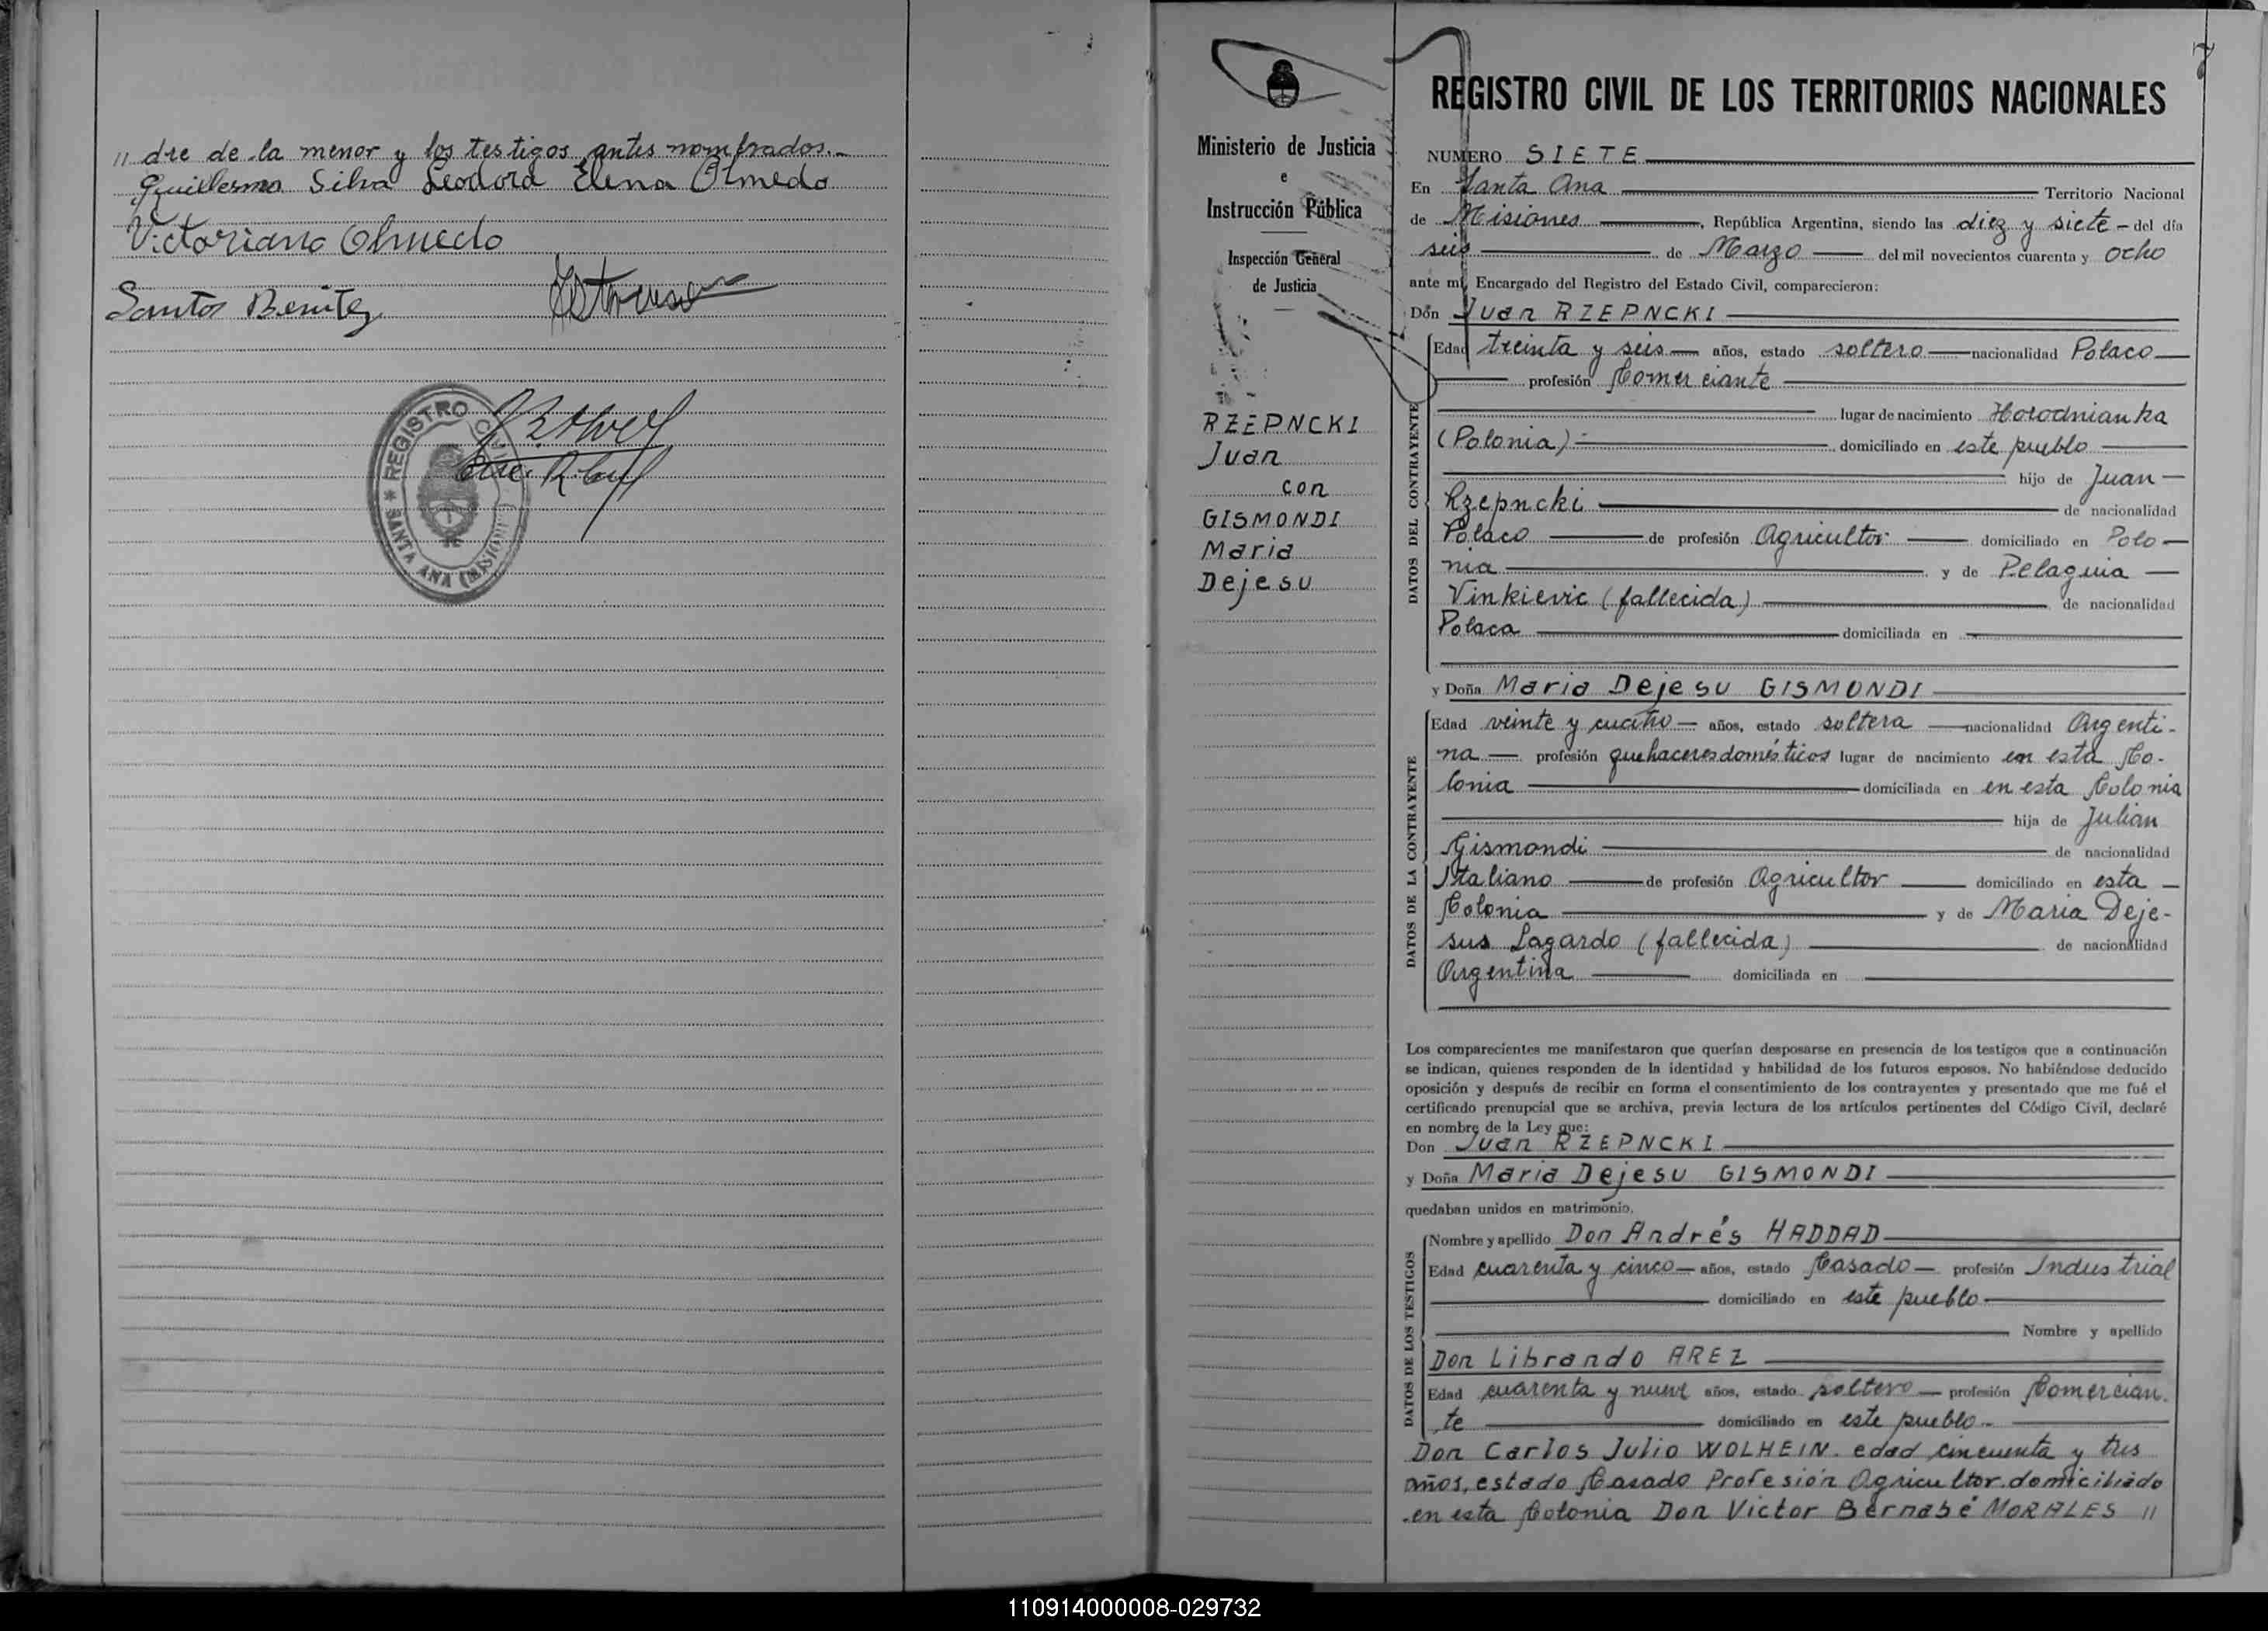 // dre de la menor y los testigos antes nombrados.-
Guillermo Silva Leodora Elena Olmedo
Victoriano Olmedo
Santos Benitez
* REGISTRO CIVIL * SANTA ANA (MISIONES)
7
Ministerio de Justicia
e
Instrucción Pública
Inspección General
de Justicia
RZEPNCKI
Juan
con
GISMONDI
Maria
Dejesu
REGISTRO CIVIL DE LOS TERRITORIOS NACIONALES
NUMERO SIETE
En Santa Ana Territorio Nacional
de Misiones, República Argentina, siendo las diez y siete - del día
seis de Marzo del mil novecientos cuarenta y ocho
ante mí, Encargado del Registro del Estado Civil, comparecieron:
Don Juan RZEPNCKI
DATOS DEL CONTRAYENTE
Edad treinta y seis años, estado soltero nacionalidad Polaco
profesión Comerciante
lugar de nacimiento Horodnianka
(Polonia) domiciliado en este pueblo
hijo de Juan
Rzepncki de nacionalidad
Polaco de profesión Agricultor domiciliado en Polo-
nia y de Pelaguia
Vinkievic (fallecida) de nacionalidad
Polaca domiciliada en
y Doña Maria Dejesu GISMONDI
DATOS DE LA CONTRAYENTE
Edad veinte y cuatro años, estado soltera nacionalidad Argenti-
na profesión quehaceres domésticos lugar de nacimiento en esta Co-
lonia domiciliada en en esta Colonia
hija de Julian
Gismondi de nacionalidad
Italiano de profesión Agricultor domiciliado en esta
Colonia y de Maria Deje-
sus Lagardo (fallecida) de nacionalidad
Argentina domiciliada en
Los comparecientes me manifestaron que querían desposarse en presencia de los testigos que a continuación
se indican, quienes responden de la identidad y habilidad de los futuros esposos. No habiéndose deducido
oposición y después de recibir en forma el consentimiento de los contrayentes y presentado que me fué el
certificado prenupcial que se archiva, previa lectura de los artículos pertinentes del Código Civil, declaré
en nombre de la Ley que:
Don Juan RZEPNCKI
y Doña Maria Dejesu GISMONDI
quedaban unidos en matrimonio.
DATOS DE LOS TESTIGOS
Nombre y apellido Don Andrés HADDAD
Edad cuarenta y cinco años, estado Casado profesión Industrial
domiciliado en este pueblo
Nombre y apellido
Don Librando AREZ
Edad cuarenta y nueve años, estado soltero profesión Comercian-
te domiciliado en este pueblo
Don Carlos Julio WOLHEIN edad cincuenta y tres
años, estado Casado Profesión Agricultor domiciliado
en esta Colonia Don Victor Bernabé MORALES //
110914000008-029732